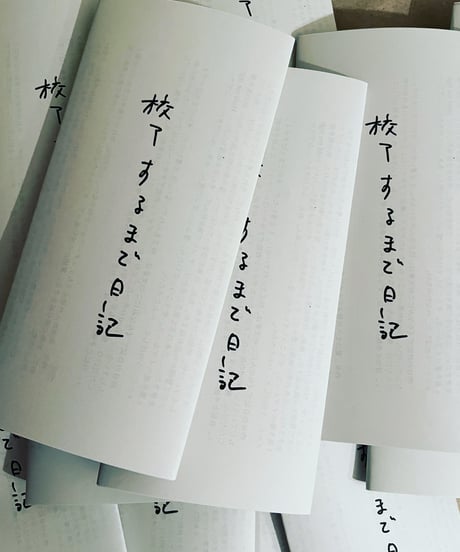 校了
校了するまで日記
するまで日記
校了するまで日記
まで日